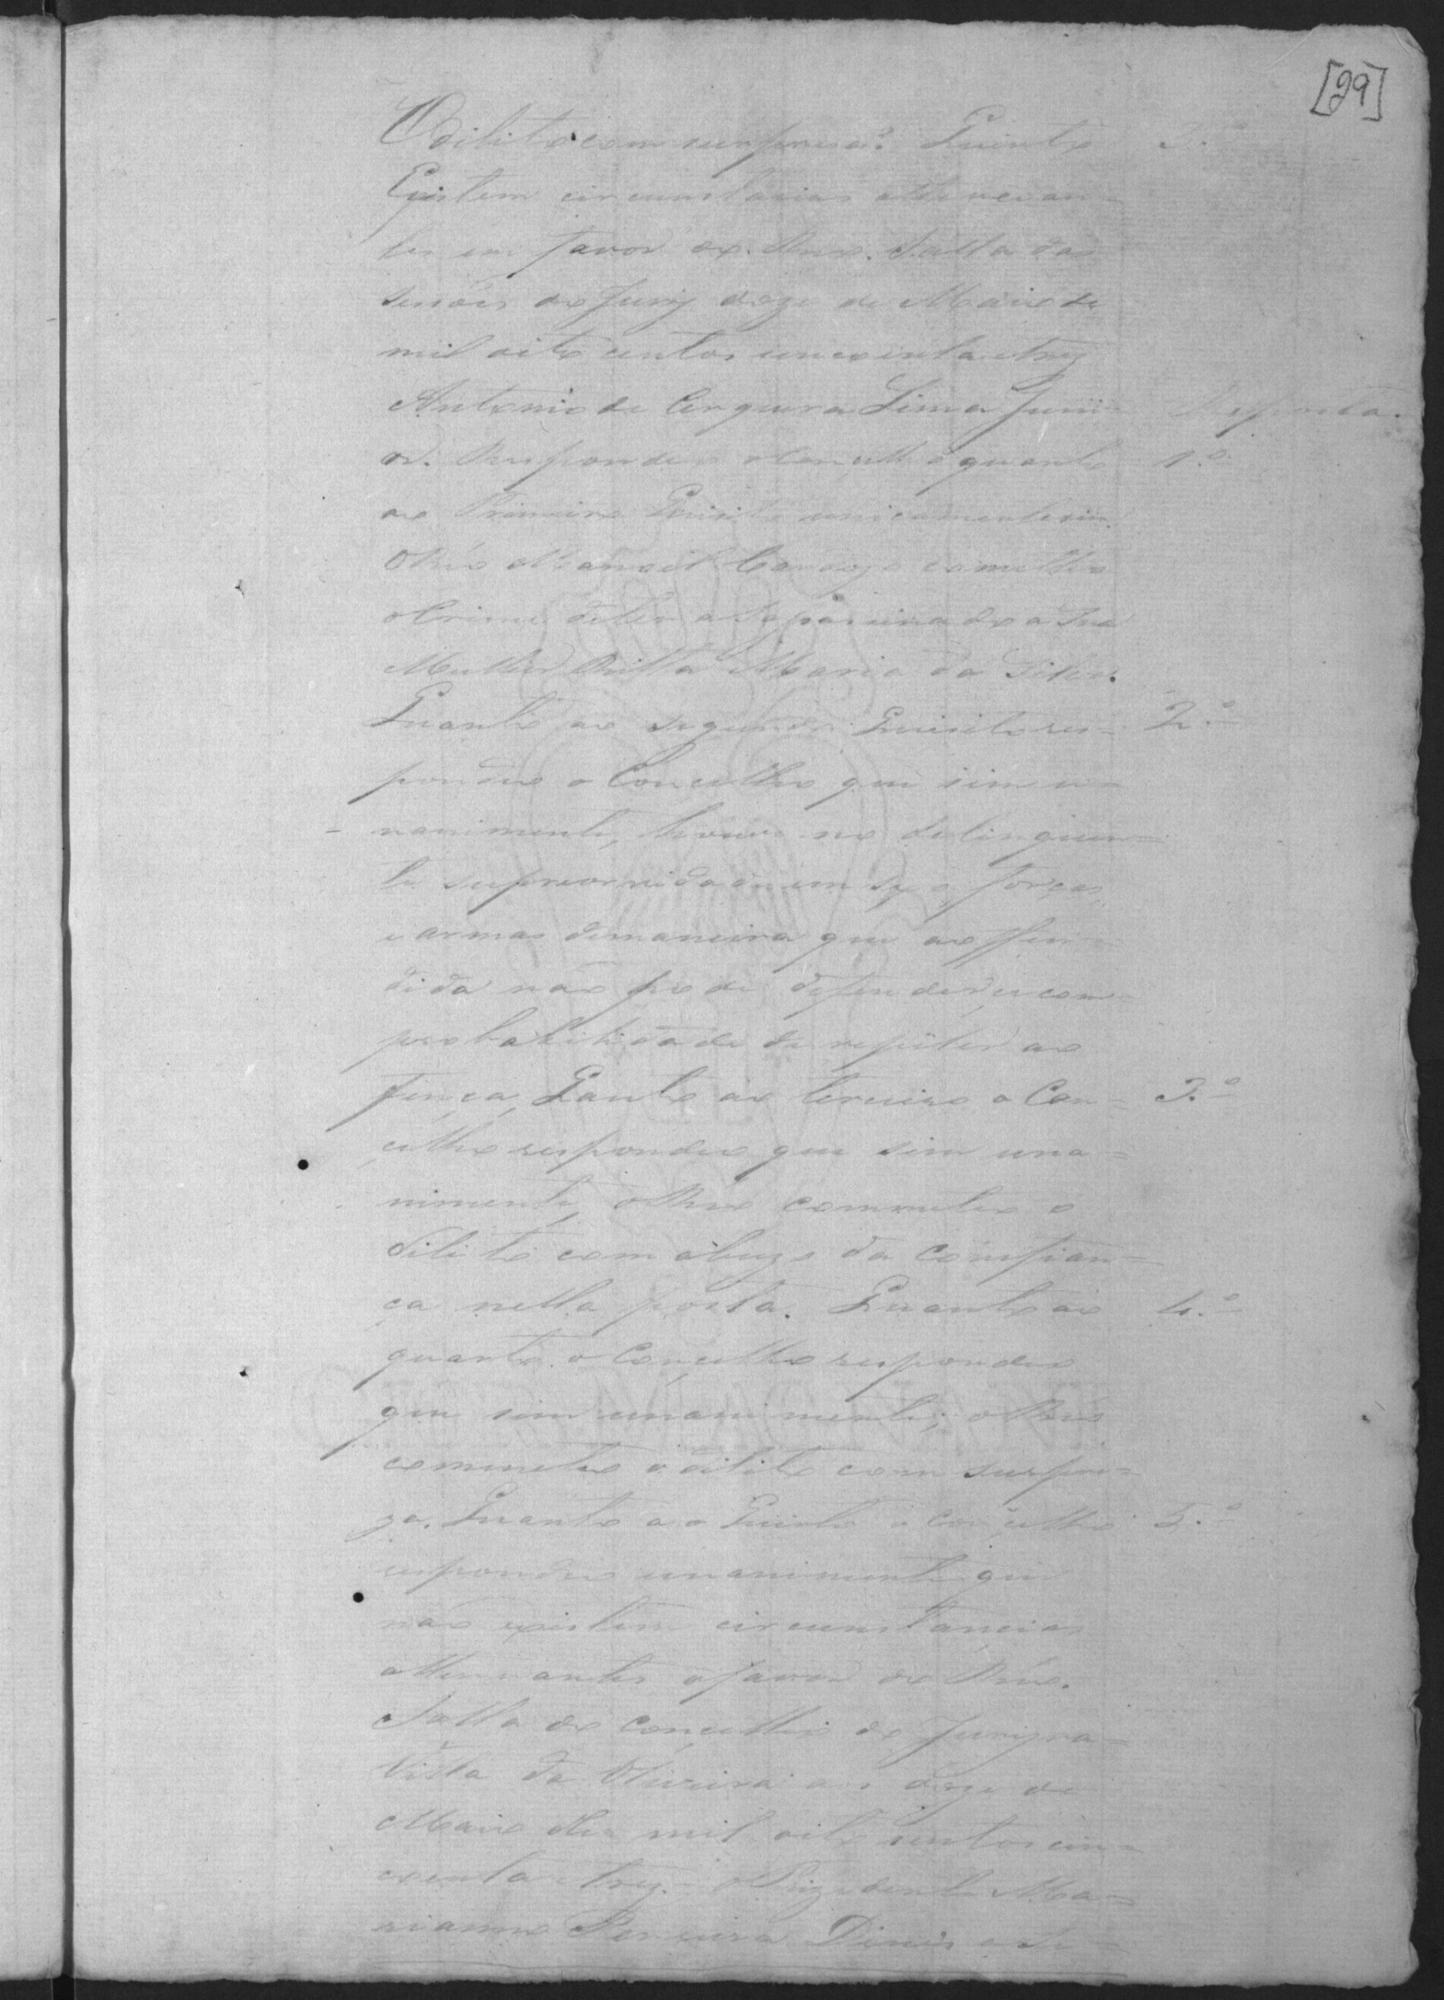 [29]
O dilito com surpresa? Quinto 5.º
Existem circunstancias attenuan-
tes em favor do Reo. Salla das
sessões do Jury doze de Maio de
mil oito centos cincoenta e trez
Antonio de Cerqueira Lima Juni- Resposta.
or. Respondeo o Concelho quanto 1.º
ao Primeiro Quisito unicamente sim
O Reo Manoel Cardozo cometteo
o Crime de ter a sua
Mulher Ritta Maria da Silva.
Quanto ao segundo Quisito res- 2.º
pondeo o Concelho que sim u-
nanimente, houve no delinquen-
te superioridade em sexo, forças,
e armas de maneira que a offen-
dida não pode defender-se com
probabilidade de repelir a o
fença, Quanto ao terceiro o Con- 3.º
celho respondeo que sim una-
nimente, o Reo commeteo o
dilito com abuzo da confian-
ça nella posta. Quanto ao 4.º
quarto o Concelho respondeo
que sim unanimente; o Reo
commeteo o dilito com surpre-
za. Quanto a o Quinto o Concelho 5.º
respondeo unanimente que
não existem circunstancias
attenuantes a favor do Reo.
Salla do Concelho do Jury na
Villa da Oliveira aos doze de
Maio de mil oito centos cin-
coenta e trez. O Prezidente Ma-
rianno Ferreira Diniz o Se-